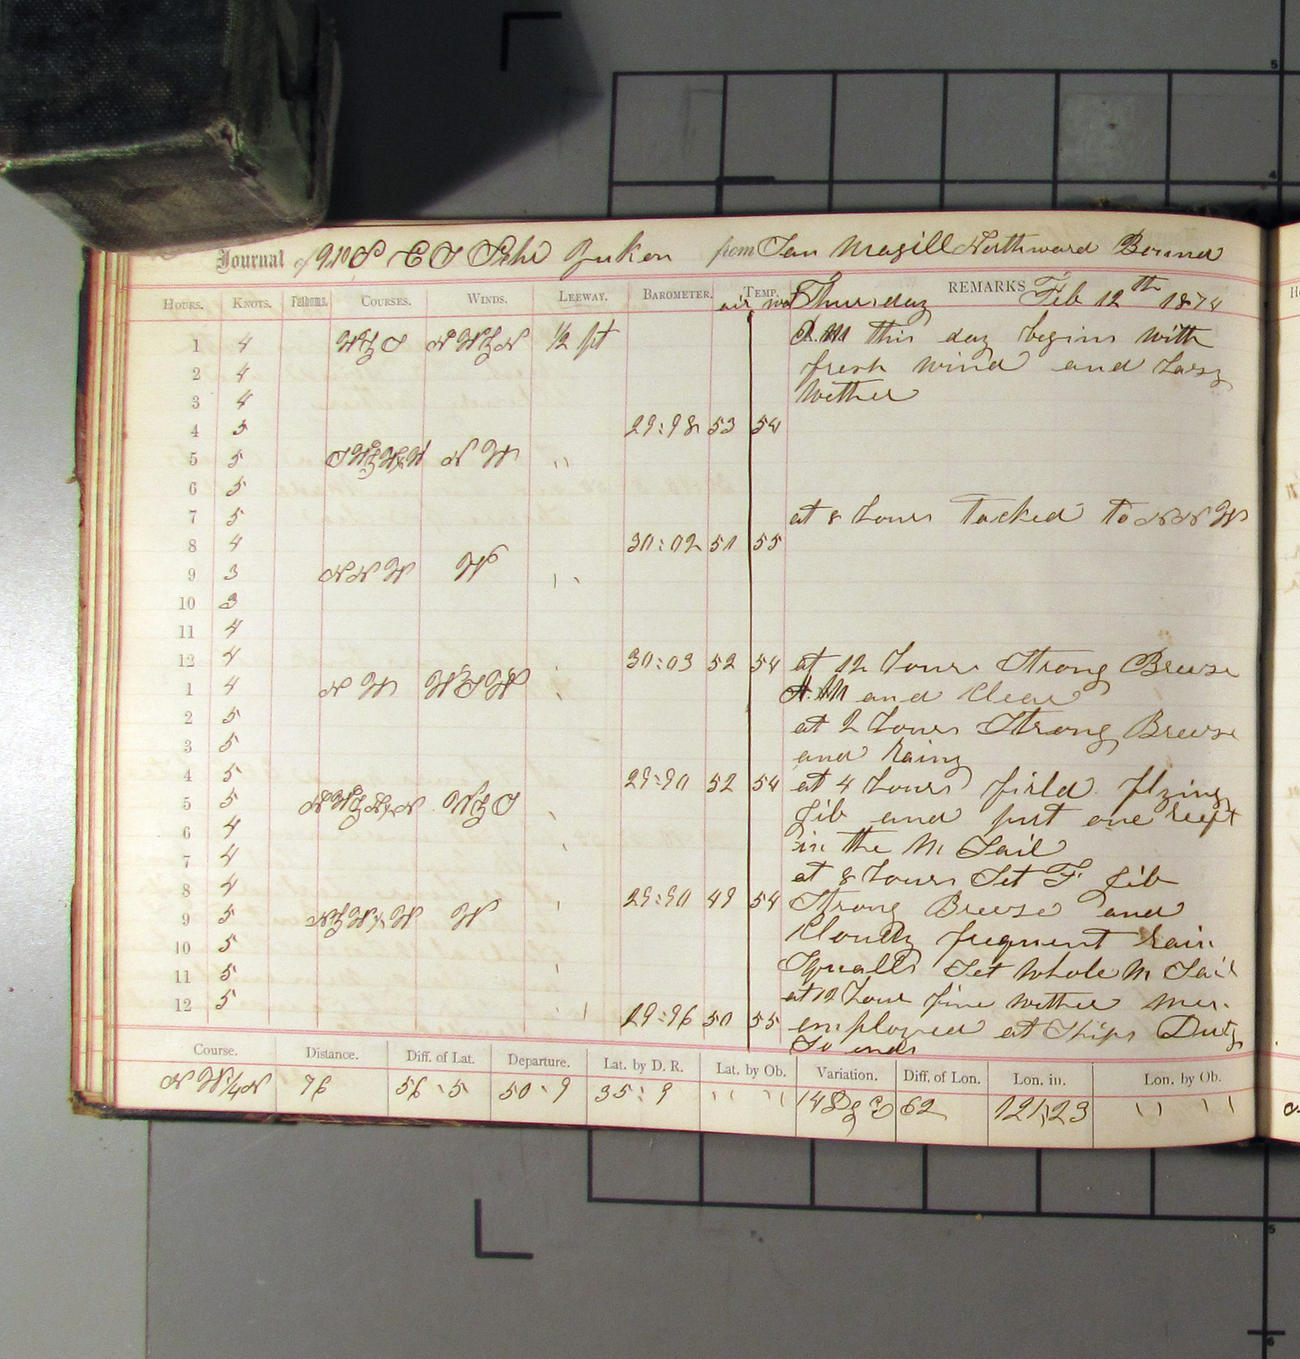 Journal of U.S. C S Schr Yukon from San Magill Northward Bound
HOURS. KNOTS. Fathoms. COURSES. WINDS. LEEWAY. BAROMETER. TEMP. REMARKS
air wat Thursday Feb 12th 1874
1 4 WbS NWbN 1/2 pt P.M this day begins with
2 4 fresh wind and Hasy
3 4 Wether
4 5 29:98 53 54
5 5 SWbW½W NW ,,
6 5
7 5 at 8 hours Tacked to NNW
8 4 30:02 51 55
9 3 NNW W ,,
10 3
11 4
12 4 30:03 52 54 at 12 hours Strong Breese
1 4 NW WSW A.M and Clear
2 5 at 2 hours Strong Breese
3 5 and Rainy
4 5 29:90 52 54 at 4 hours firld flying
5 5 NWbN½N WbS Jib and put one reeft
6 4 in the M Sail
7 4 at 8 hours Set F Jib
8 4 29:90 49 54 Strong Breese and
9 5 NbW½W W Cloudy frequent Rain
10 5 Squalls Set whole M Sail
11 5 at 12 hour fine wether men
12 5 29:96 50 55 employed at Ships Duty
So ends
Course. Distance. Diff. of Lat. Departure. Lat. by D. R. Lat. by Ob. Variation. Diff. of Lon. Lon. in. Lon. by Ob.
NW¼N 76 56,5 50,9 35,9 ,, ,, 62 121,23 ,, ,,